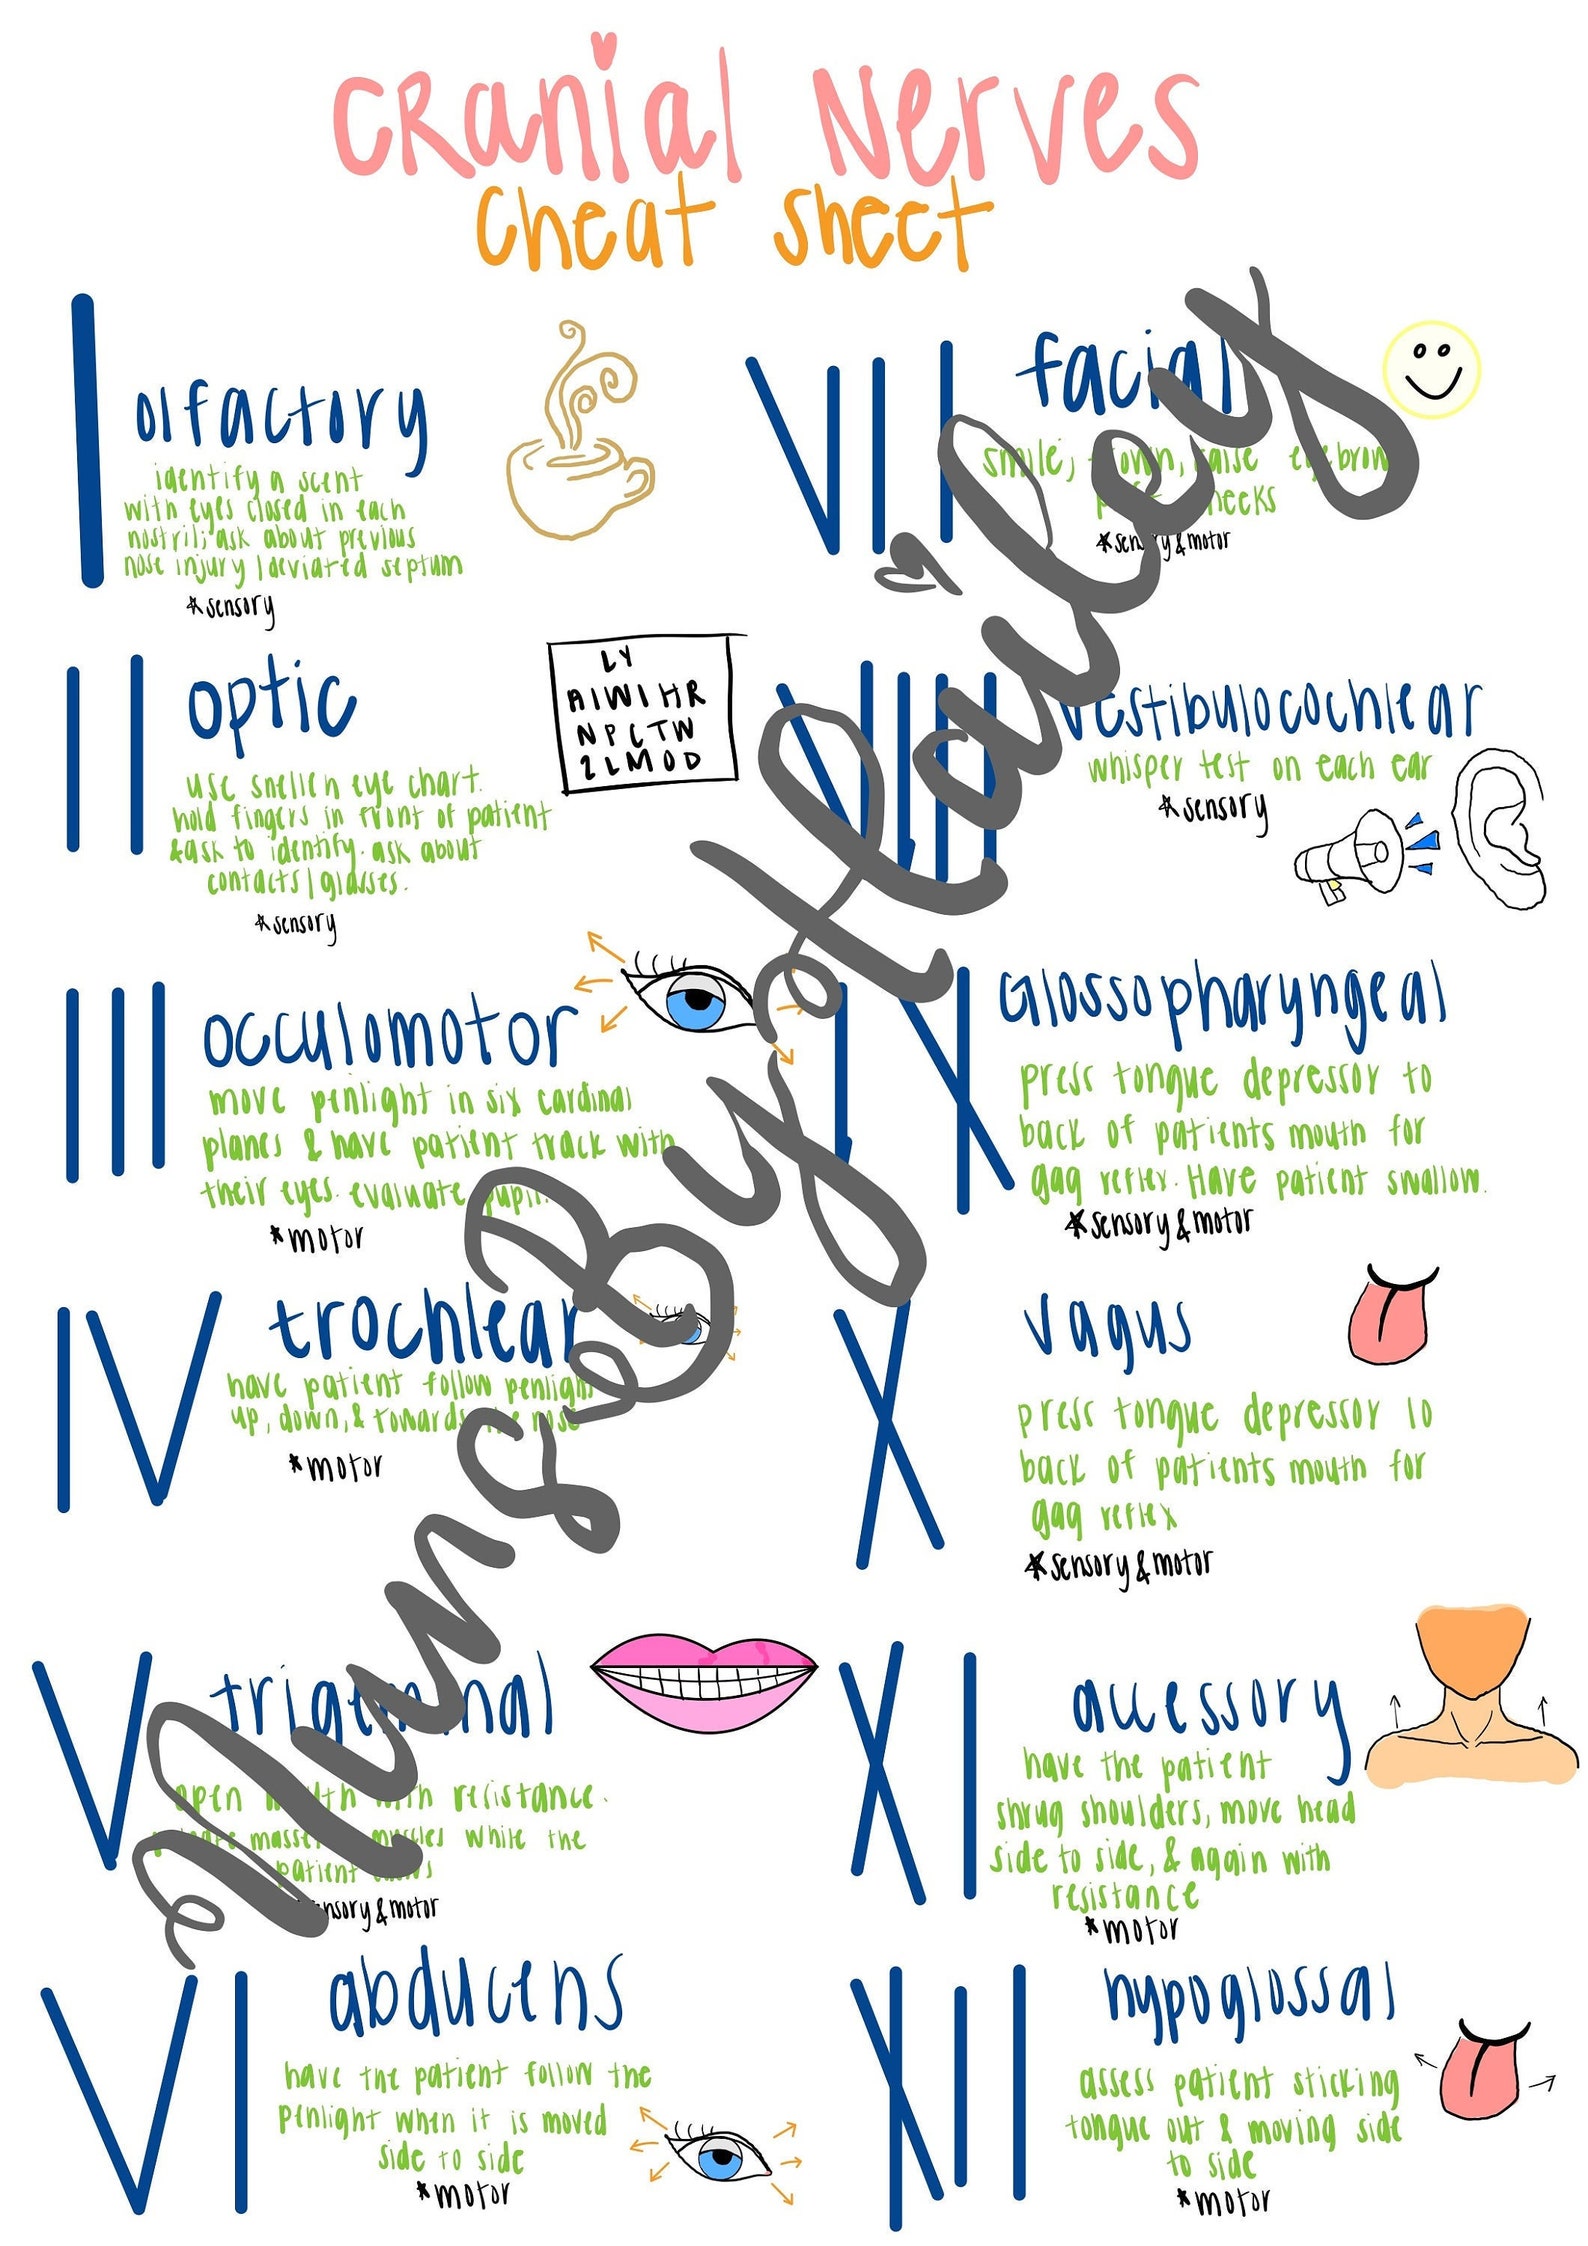 cranial Nerves
cheat sheet
I
olfactory
identify a scent
with eyes closed in each
nostril; ask about previous
nose injury / deviated septum
*sensory
II
optic
use snellen eye chart.
hold fingers in front of patient
& ask to identify. ask about
contacts / glasses.
*sensory
LY
AIWIHR
NPCTW
2LMOD
III
occulomotor
move penlight in six cardinal
planes & have patient track with
their eyes. evaluate pupil
*motor
IV
trochlear
have patient follow penlight
up, down, & towards the nose
*motor
V
trigeminal
open mouth with resistance.
muscles while the
patient
sensory & motor
VI
abducens
have the patient follow the
penlight when it is moved
side to side
*motor
VII
facial
smile, frown, raise eyebrow
cheeks
*sensory & motor
VIII
vestibulocochlear
whisper test on each ear
*sensory
IX
Glossopharyngeal
press tongue depressor to
back of patients mouth for
gag reflex. Have patient swallow.
*sensory & motor
X
vagus
press tongue depressor to
back of patients mouth for
gag reflex
*sensory & motor
XI
accessory
have the patient
shrug shoulders, move head
side to side, & again with
resistance
*motor
XII
hypoglossal
assess patient sticking
tongue out & moving side
to side
*motor
NurseByHailey